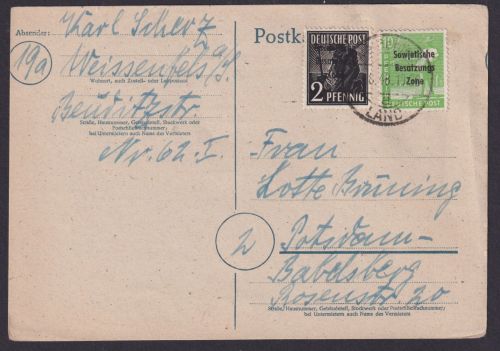 Absender: Karl Scherz
Postk
19a
Weissenfels a/S.
Wohnort, auch Zustell- oder Leitpostamt
Beuditzstr
Straße, Hausnummer, Gebäudeteil, Stockwerk oder
Postschließfachnummer;
bei Untermietern auch Name des Vermieters
Nr. 62. I.
DEUTSCHE POST
2 PFENNIG
Sowjetische
Besatzungs
Zone
DEUTSCHE POST
LAND
Frau
Lotte Brüning
2
Potsdam-
Babelsberg
Rosenstr. 20
Straße, Hausnummer, Gebäudeteil, Stockwerk oder Postschließfachnummer;
bei Untermietern auch Name des Vermieters